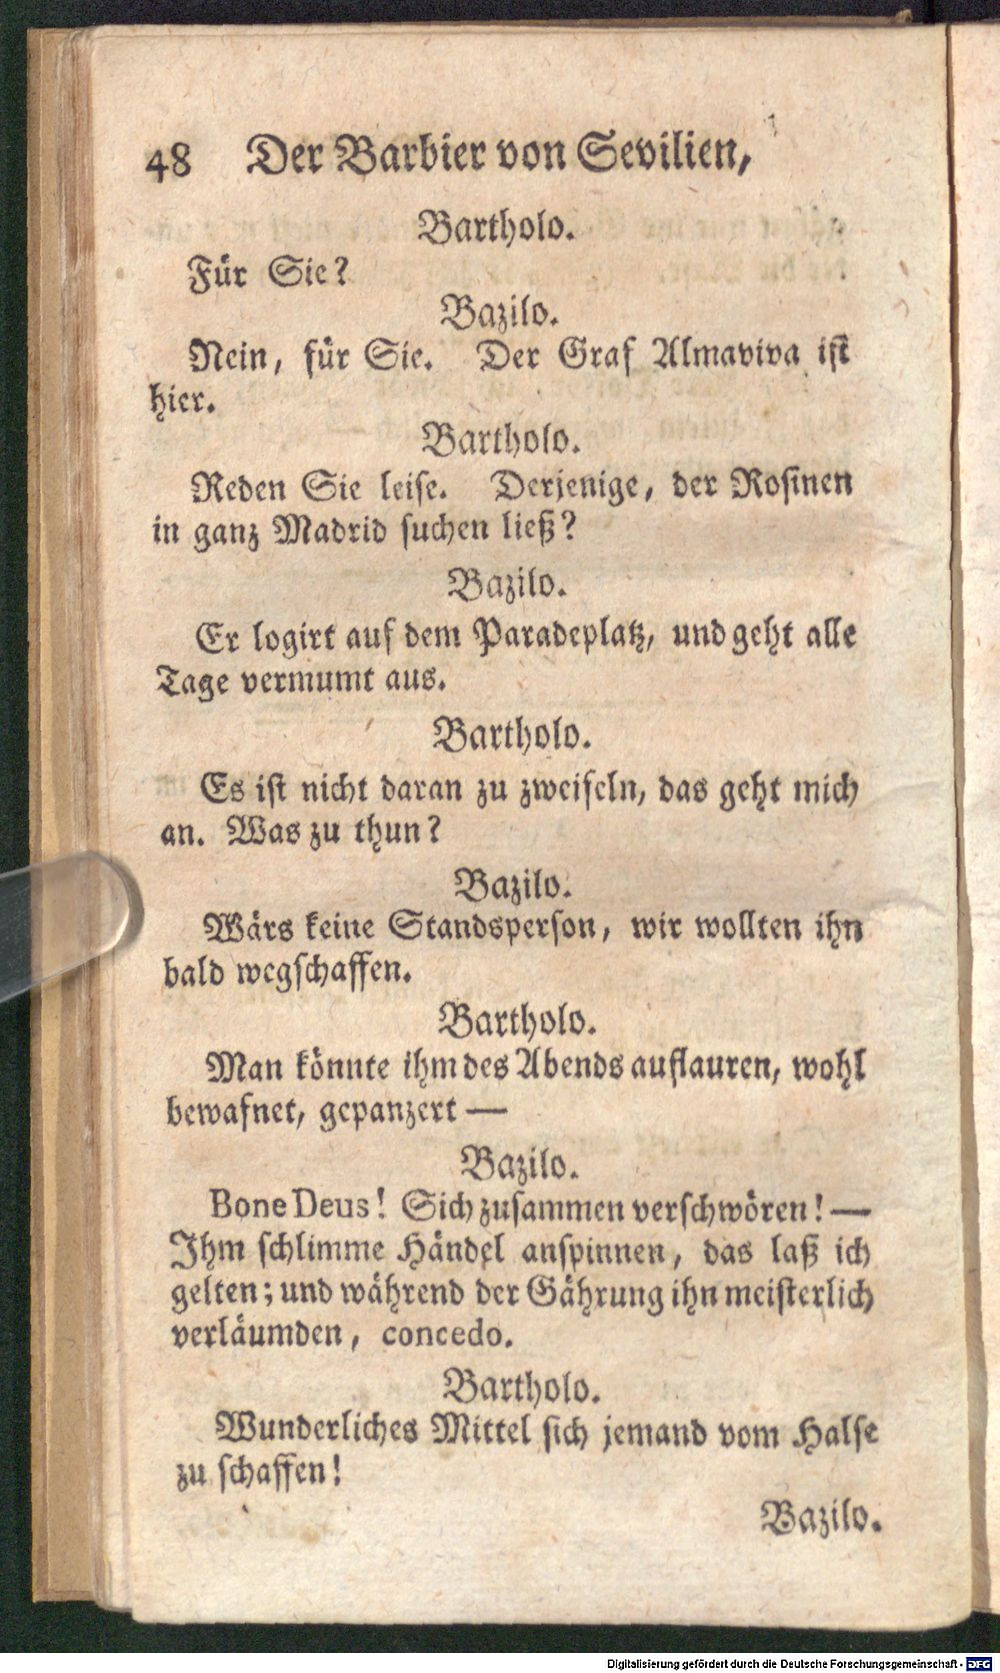 48 Der Barbier von Sevilien,
Bartholo.
Für Sie?
Bazilo.
Nein, für Sie. Der Graf Almaviva ist
hier.
Bartholo.
Reden Sie leise. Derjenige, der Rosinen
in ganz Madrid suchen ließ?
Bazilo.
Er logirt auf dem Paradeplatz, und geht alle
Tage vermumt aus.
Bartholo.
Es ist nicht daran zu zweifeln, das geht mich
an. Was zu thun?
Bazilo.
Wärs keine Standsperson, wir wollten ihn
bald wegschaffen.
Bartholo.
Man könnte ihm des Abends auflauren, wohl
bewafnet, gepanzert —
Bazilo.
Bone Deus! Sich zusammen verschwören! —
Ihm schlimme Händel anspinnen, das laß ich
gelten; und während der Gährung ihn meisterlich
verläumden, concedo.
Bartholo.
Wunderliches Mittel sich jemand vom Halse
zu schaffen!
Bazilo.
Digitalisierung gefördert durch die Deutsche Forschungsgemeinschaft - DFG